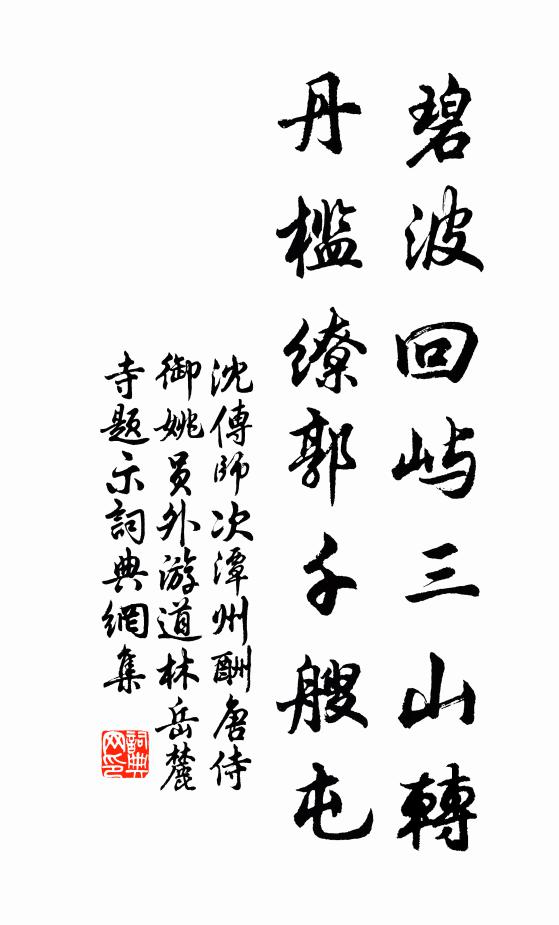 碧波回屿三山轉
丹檻繚郭千艘屯
沈傳师次潭州酬唐侍
御姚员外游道林岳麓
寺题示詞典網集
詞典网印